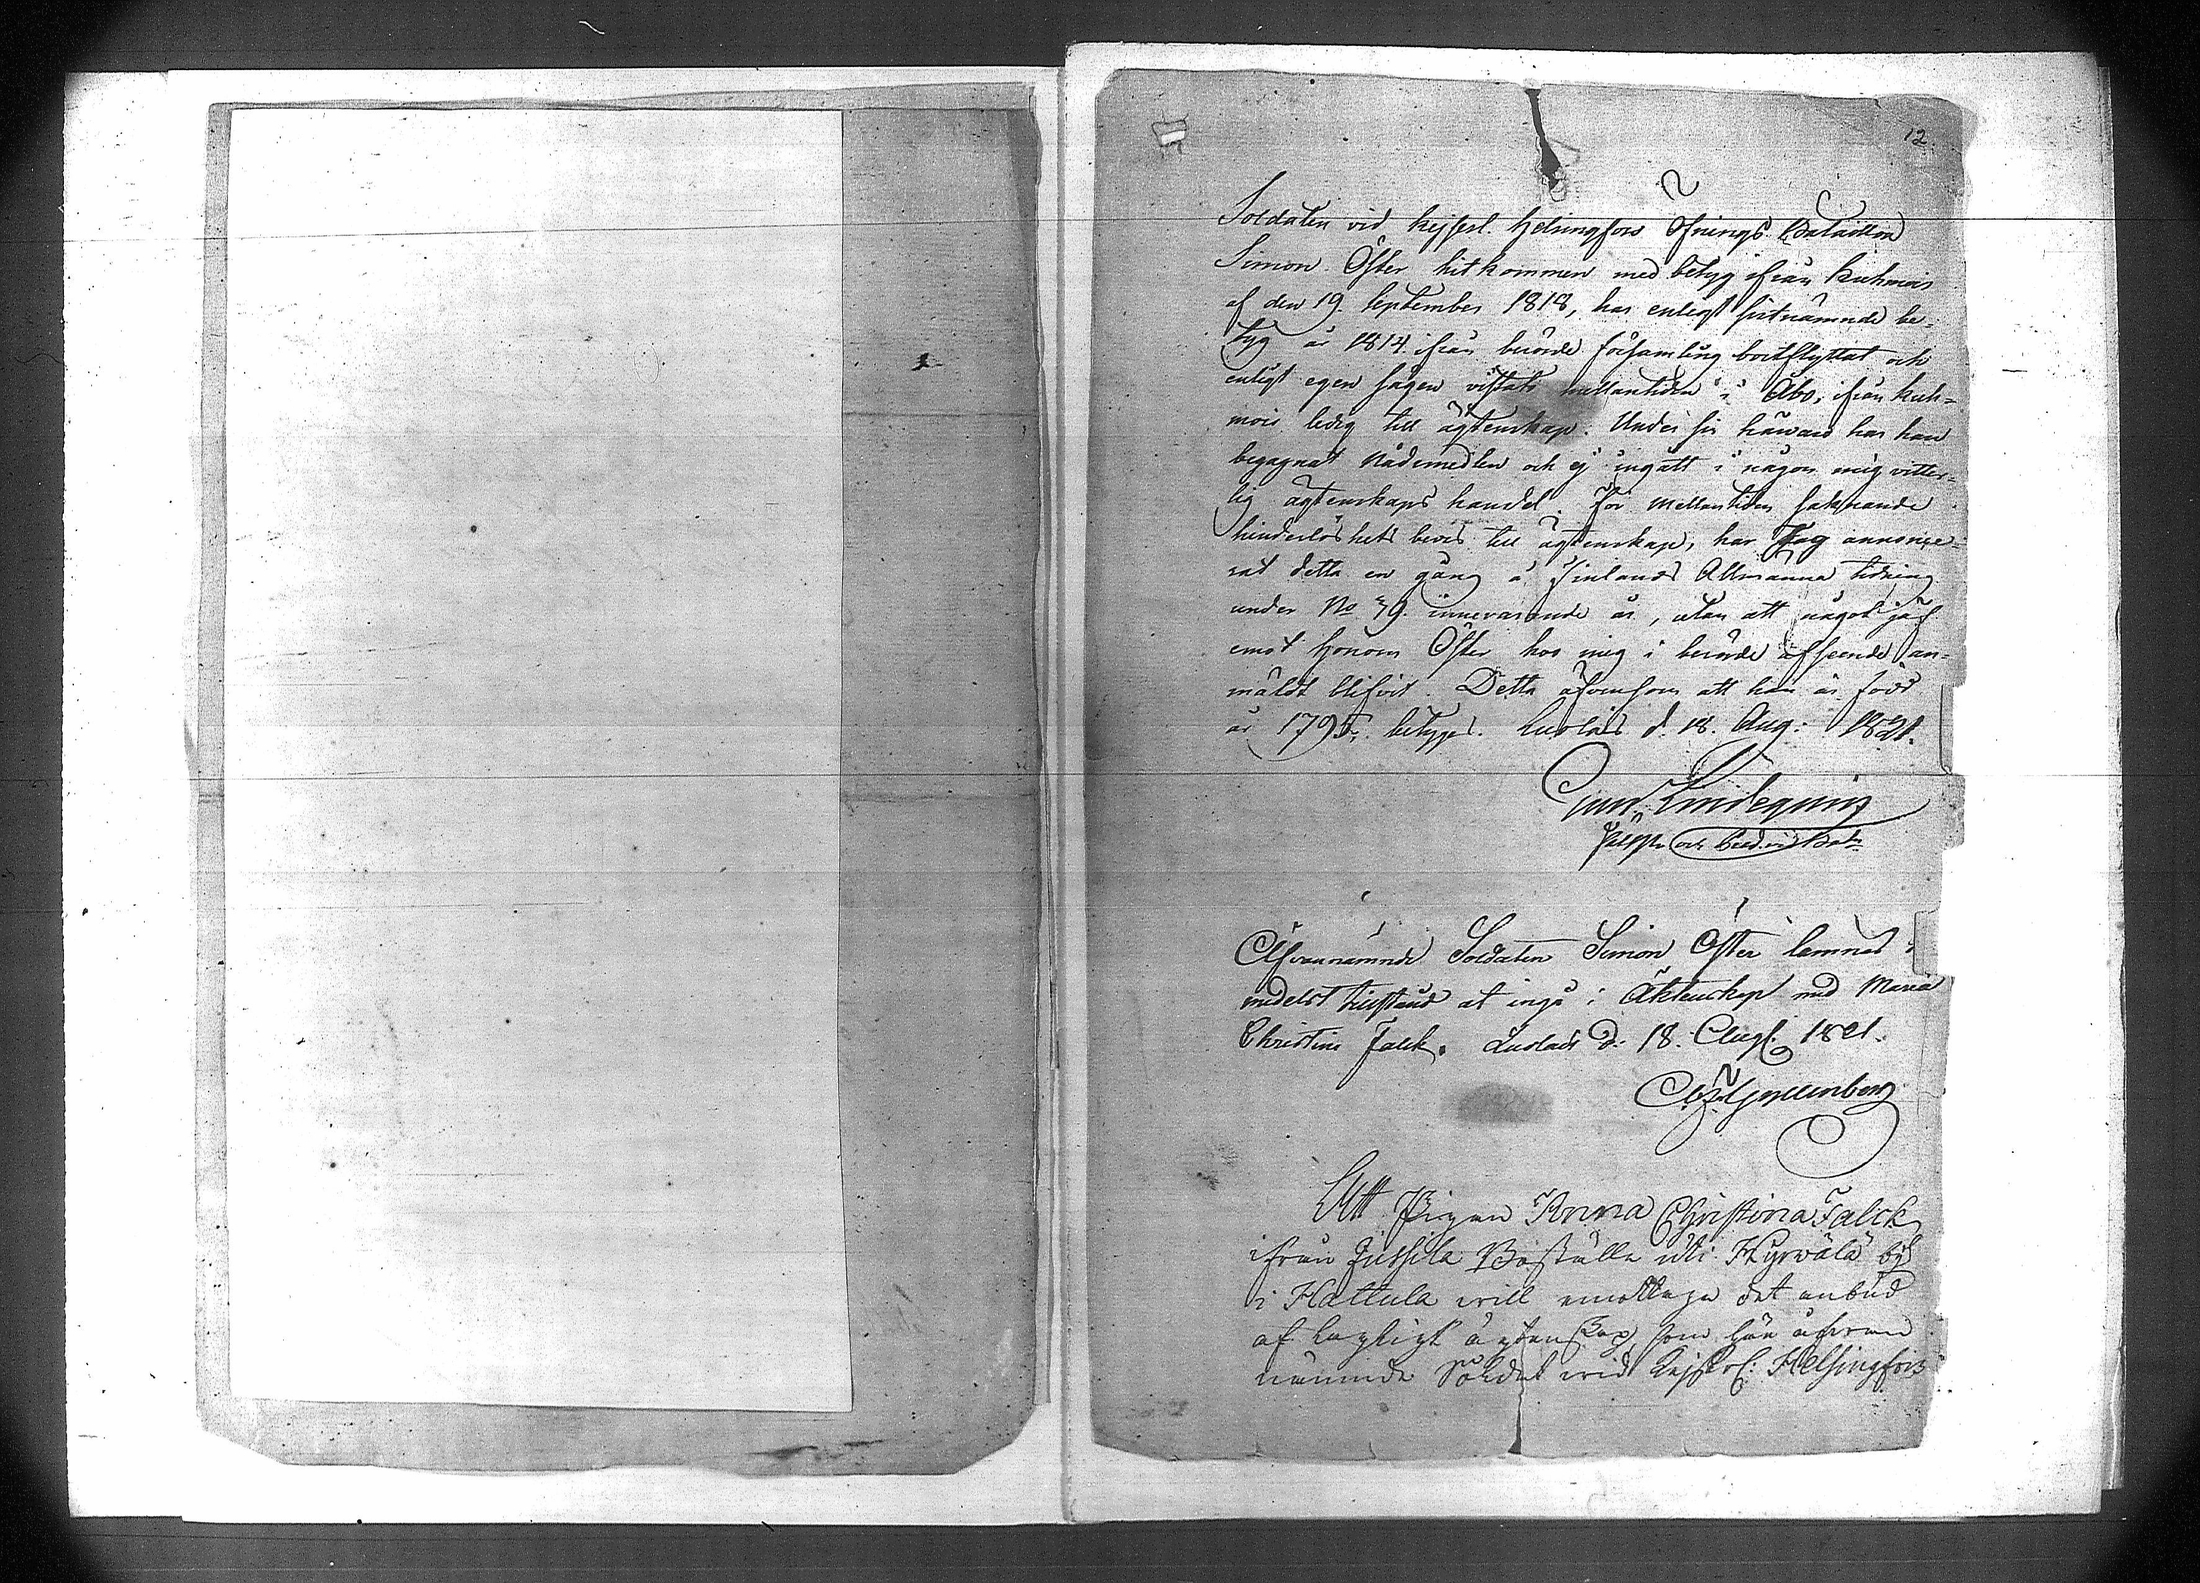 12.
Soldaten vid Kejserl. Helsingfors Öfnings Bataillon
Simon Öster hitkommen med betyg ifrån Kuhmois
af den 19. September 1818, har enligt sistnämnde be-
tyg år 1814 ifrån berörde församling bortflyttat och
enligt egen sägen vistats mellantiden i Åbo, ifrån Kuh=
mois ledig till ägtenskap. Under sin härvaro har han
begagnat Nådemedlen och ej ingått i någon mig vitter=
lig ägtenskaps handel. För mellantiden saknande
hinderlöshets bevis till ägtenskap, har Jag annonce=
rat detta en gång i Finlands Allmänna tidning
under No 79. innevarande år, utan att något jäf
emot honom Öster hos mig i berörde afseende an=
mäldt blifvit. Detta äfvensom att han är född
år 1795, betygas. d. 18. Aug: 1821.
Lindequist
och Bat:
Ofvannämnde Soldaten Simon Öster lemnas
medelst tillstånd at ingå i Äktenskap med Maria
Christina Falck. d: 18. Aug. 1821.
Att Pigan Anna Christina Falck
ifrån Jussila Boställe uti Hyrwälä by
i Hattula will emottaga det anbud
af lagligt ägtenskap, som här åfvan
nämnde Soldat wid Kejserl: Helsingfors